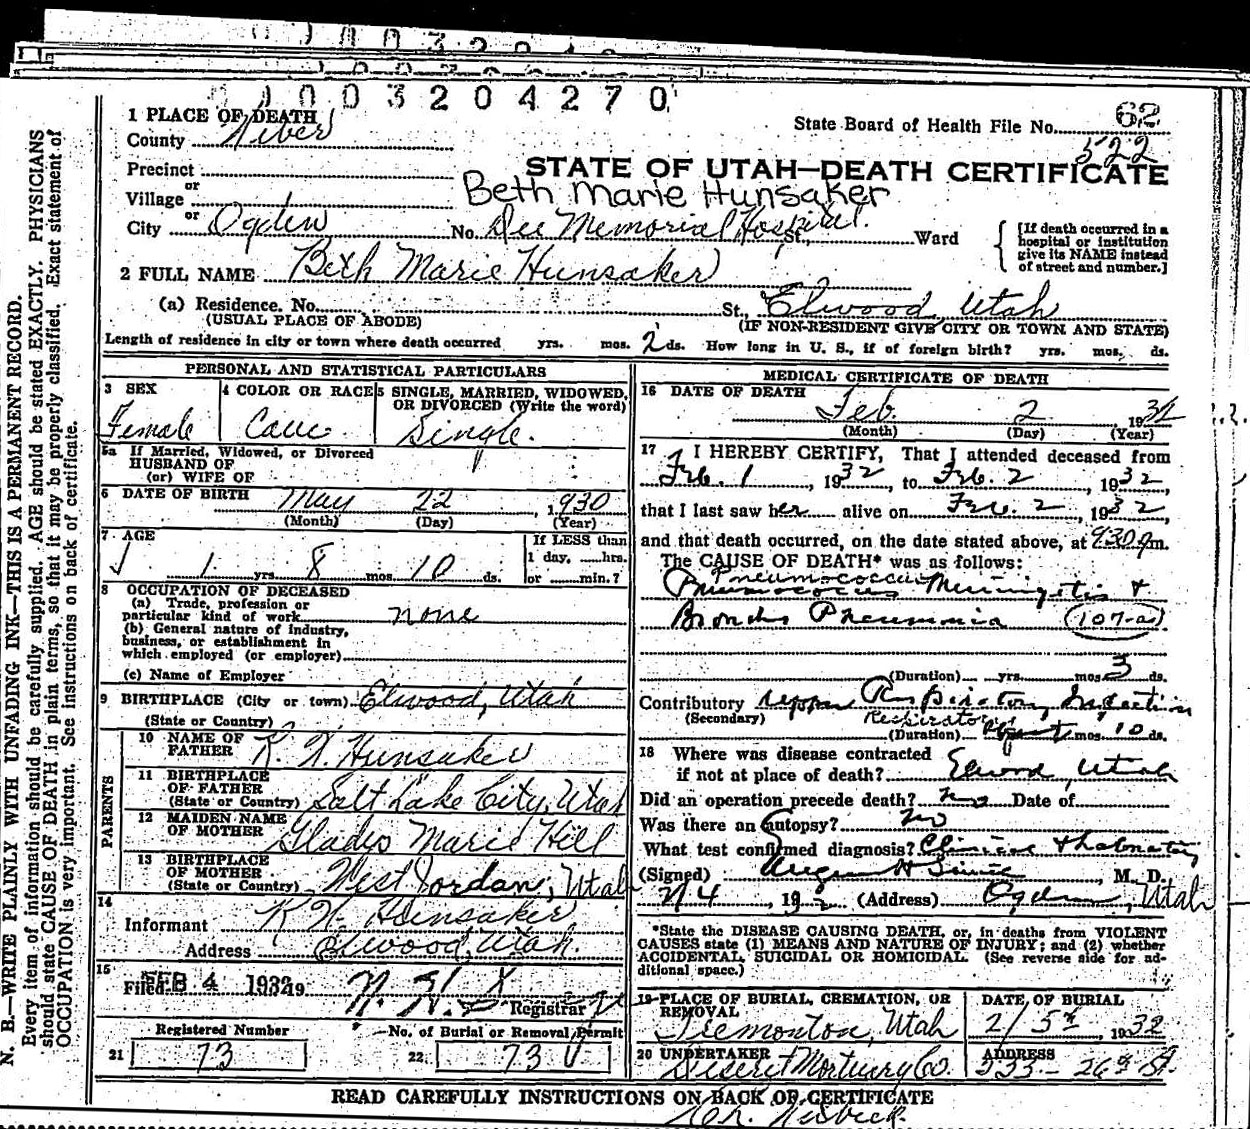 1003204270
1 PLACE OF DEATH
County Weber
State Board of Health File No. 62
522
Precinct
or
Village
STATE OF UTAH—DEATH CERTIFICATE
Beth Marie Hunsaker
or
City Ogden No. Dee Memorial Hospital St., Ward
[If death occurred in a hospital or institution give its NAME instead of street and number.]
2 FULL NAME Beth Marie Hunsaker
(a) Residence. No. St., Elwood, Utah
(USUAL PLACE OF ABODE) (IF NON-RESIDENT GIVE CITY OR TOWN AND STATE)
Length of residence in city or town where death occurred yrs. mos. 2 ds. How long in U. S., if of foreign birth? yrs. mos. ds.
PERSONAL AND STATISTICAL PARTICULARS
3 SEX
Female
4 COLOR OR RACE
Cauc.
5 SINGLE, MARRIED, WIDOWED, OR DIVORCED (Write the word)
Single.
5a If Married, Widowed, or Divorced
HUSBAND OF
(or) WIFE OF
6 DATE OF BIRTH May 22, 1930
(Month) (Day) (Year)
7 AGE
1 yrs. 8 mos. 10 ds.
If LESS than
1 day, ......hrs.
or ......min.?
8 OCCUPATION OF DECEASED
(a) Trade, profession or
particular kind of work none
(b) General nature of industry,
business, or establishment in
which employed (or employer)
(c) Name of Employer
9 BIRTHPLACE (City or town) Elwood, Utah
(State or Country)
PARENTS
10 NAME OF
FATHER Hunsaker
11 BIRTHPLACE
OF FATHER
(State or Country) Salt Lake City, Utah
12 MAIDEN NAME
OF MOTHER Gladys Marie Hill
13 BIRTHPLACE
OF MOTHER
(State or Country) West Jordan, Utah
14
Informant Hunsaker
Address Elwood, Utah.
15
Filed FEB 4 1932 19
Registrar
Registered Number
21 73
No. of Burial or Removal Permit
22 73
MEDICAL CERTIFICATE OF DEATH
16 DATE OF DEATH
Feb. 2 1932
(Month) (Day) (Year)
17 I HEREBY CERTIFY, That I attended deceased from
Feb. 1, 1932, to Feb. 2, 1932,
that I last saw her alive on Feb. 2, 1932,
and that death occurred, on the date stated above, at 930 m.
The CAUSE OF DEATH* was as follows:
Pneumococcus
Pneumococcus Meningitis +
Broncho Pneumonia (107-a)
(Duration) yrs. mos. 3 ds.
Contributory Upper Respiratory Infection
(Secondary) Respiratory
(Duration) mos. 10 ds.
18 Where was disease contracted
if not at place of death? Elwood, Utah
Did an operation precede death? no Date of
Was there an autopsy? no
What test confirmed diagnosis? Clinical + Laboratory
(Signed) , M. D.
2/4, 1932 (Address) Ogden, Utah
*State the DISEASE CAUSING DEATH, or, in deaths from VIOLENT
CAUSES state (1) MEANS AND NATURE OF INJURY; and (2) whether
ACCIDENTAL, SUICIDAL OR HOMICIDAL. (See reverse side for ad-
ditional space.)
19 PLACE OF BURIAL, CREMATION, OR
REMOVAL
Tremonton, Utah
DATE OF BURIAL
2/5th, 1932
20 UNDERTAKER
Deseret Mortuary Co.
ADDRESS
26th St.
READ CAREFULLY INSTRUCTIONS ON BACK OF CERTIFICATE
N. B.—WRITE PLAINLY WITH UNFADING INK—THIS IS A PERMANENT RECORD.
Every item of information should be carefully supplied. AGE should be stated EXACTLY. PHYSICIANS
should state CAUSE OF DEATH in plain terms, so that it may be properly classified. Exact statement of
OCCUPATION is very important. See instructions on back of certificate.